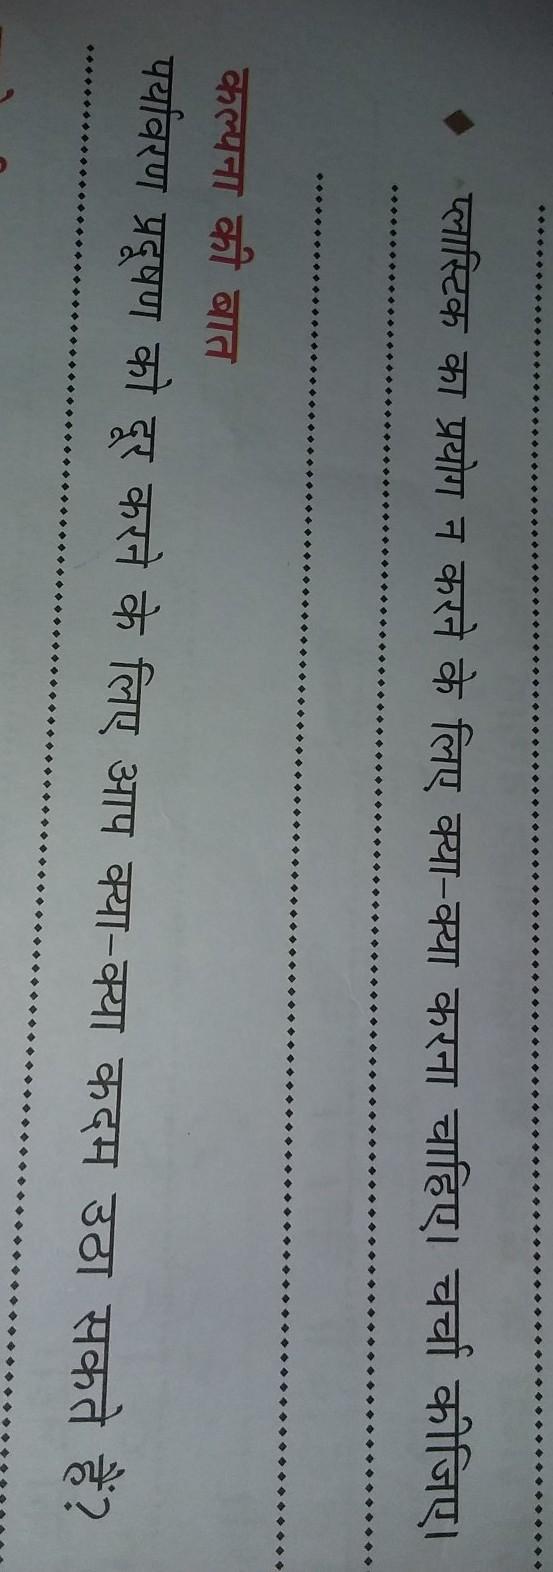 प्लास्टिक का प्रयोग न करने के लिए क्या-क्या करना चाहिए। चर्चा कीजिए।
कल्पना की बात
पर्यावरण प्रदूषण को दूर करने के लिए आप क्या-क्या कदम उठा सकते हैं?